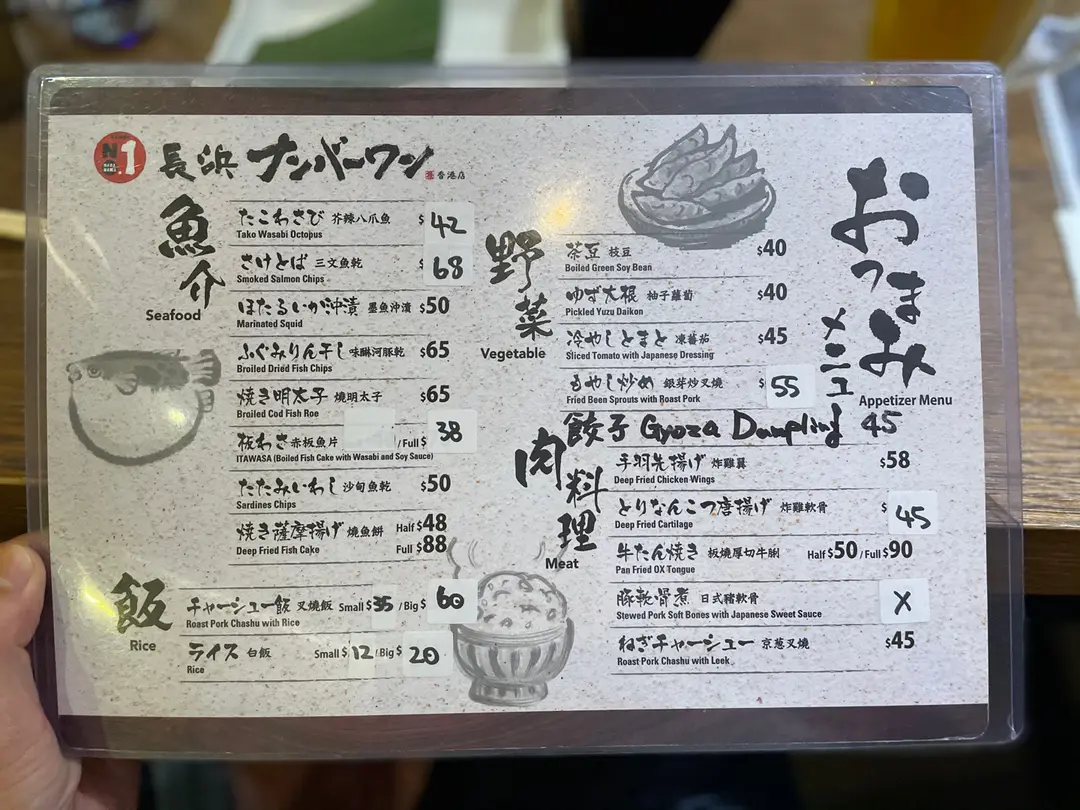 N 1
長浜 ナンバーワン
香港店
おつまみ
メニュー
Appetizer Menu
魚介
Seafood
たこわさび 芥辣八爪魚 $42
Tako Wasabi Octopus
さけとば 三文魚乾 $68
Smoked Salmon Chips
ほたるいか沖漬 墨魚沖漬 $50
Marinated Squid
ふぐみりん干し 味醂河豚乾 $65
Broiled Dried Fish Chips
焼き明太子 燒明太子 $65
Broiled Cod Fish Roe
板わさ 赤板魚片 / Full $38
ITAWASA (Boiled Fish Cake with Wasabi and Soy Sauce)
たたみいわし 沙甸魚乾 $50
Sardines Chips
焼き薩摩揚げ 燒魚餅 Half $48
Deep Fried Fish Cake Full $88
飯
Rice
チャーシュー飯 叉燒飯 Small $35 / Big $60
Roast Pork Chashu with Rice
ライス 白飯 Small $12 / Big $20
Rice
野菜
Vegetable
茶豆 枝豆 $40
Boiled Green Soy Bean
ゆず大根 柚子蘿蔔 $40
Pickled Yuzu Daikon
冷やしとまと 凍蕃茄 $45
Sliced Tomato with Japanese Dressing
もやし炒め 銀芽炒叉燒 $55
Fried Been Sprouts with Roast Pork
餃子 Gyoza Dumpling 45
肉料理
Meat
手羽先揚げ 炸雞翼 $58
Deep Fried Chicken Wings
とりなんこつ唐揚げ 炸雞軟骨 $45
Deep Fried Cartilage
牛たん焼き 板燒厚切牛脷 Half $50 / Full $90
Pan Fried OX Tongue
豚軟骨煮 日式豬軟骨 X
Stewed Pork Soft Bones with Japanese Sweet Sauce
ねぎチャーシュー 京葱叉燒 $45
Roast Pork Chashu with Leek